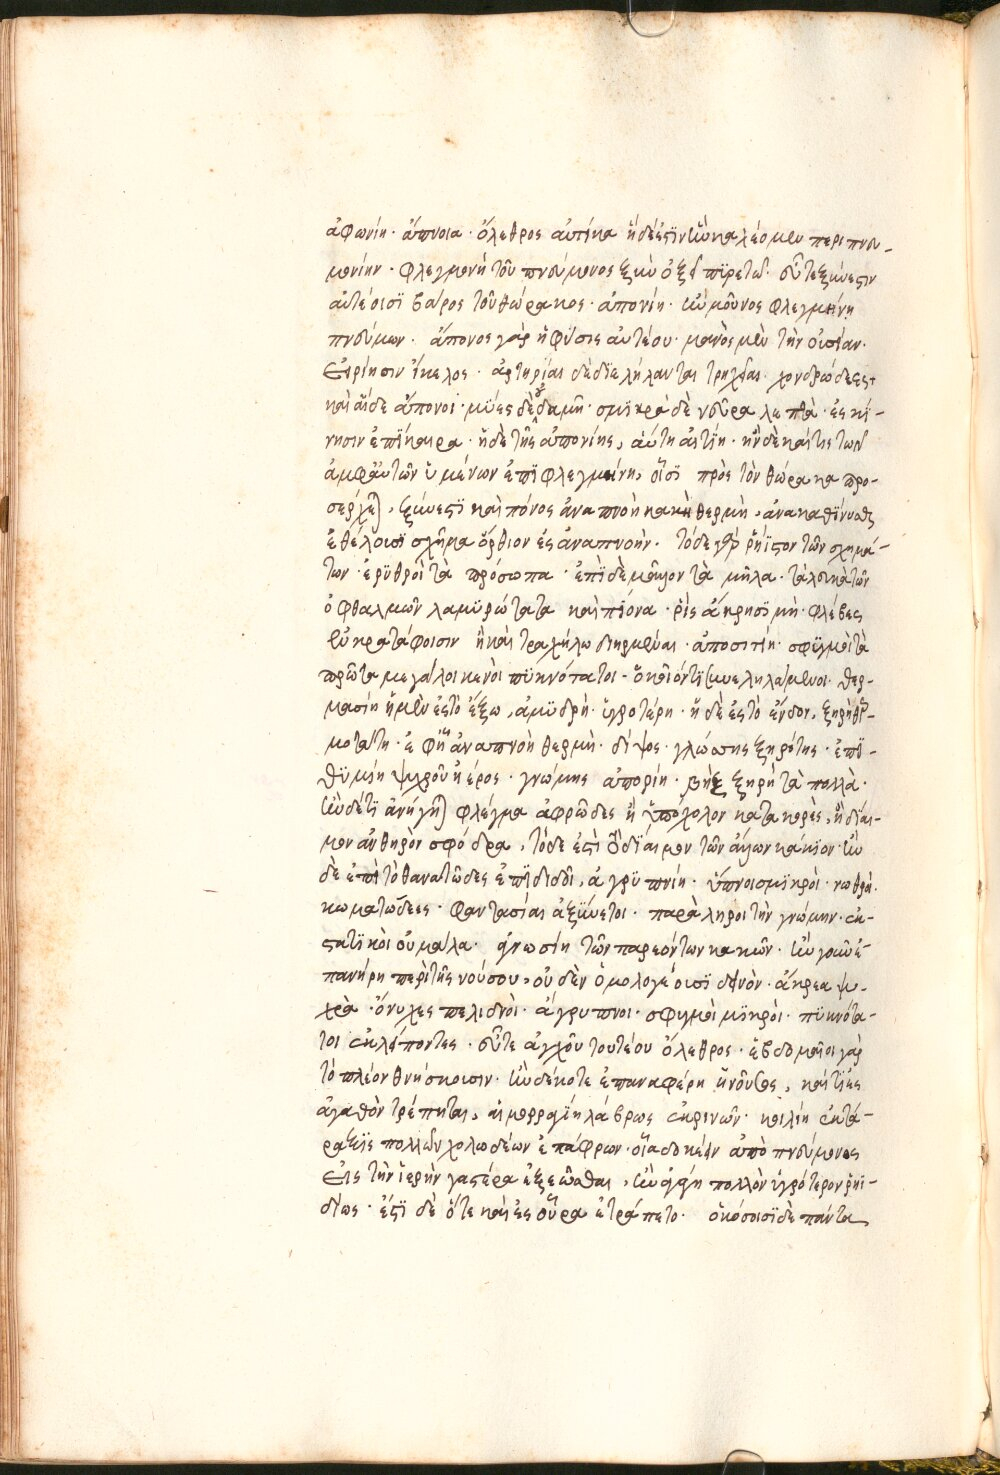 ἀφωνίη· ἄπνοια· ὄλεθρος αὐτίκα ἥδέ ἐστιν ἣν καλέομεν περιπνευ-
μονίην· φλεγμονὴ τοῦ πνεύμονος ξὺν ὀξεῖ πϊρετῷ· εὖτε ξύνεστιν
αὐτέοισϊ βάρος τοῦ θώρακος· ἀπονίη· ἢν μοῦνος φλεγμήνῃ
πνεύμων· ἄπονος γὰρ ἡ φύσις αὐτέου· μανὸς μὲν τὴν οὐσίαν·
εἰρίησιν ἴκελος· ἀρτηρίαι δὲ διεληλανται τρηχεῖαι· χονδρώδεες
καὶ αἵδε ἄπονοι· μύες δὲ οὐδαμῆ· σμϊκρὰ δὲ νεῦρα λεπτὰ· ἐς κί-
νησιν ἐπίκαιρα· ἥδε τῆς ἀπονίης, αὐτη αἰτίη· ἢν δὲ καί τις τῶν
ἀμφ' αὐτῶν ὑμένων ἐπϊφλεγμήνῃ, οἷσϊ πρὸς τὸν θώρακα προ-
σέρχεται, ξύνεστϊ καὶ πόνος ἀναπνοὴ κακὴ θερμὴ, ἀνακαθίννυσθαι
ἐθέλουσϊ σχῆμα ὄρθιον ἐς ἀναπνοήν· τόδε γὰρ ῥήϊστον τῶν σχημά-
των· ἐρϋθροὶ τὰ πρόσωπα· ἐπὶ δὲ μᾶλλον τὰ μῆλα· τὰ λευκὰ τῶν
ὀφθαλμῶν λαμϋρώτατα καὶ πίονα· ῥὶς ἄκρη σϊμὴ· φλέβες
ἐν κροτάφοισιν ἢ καὶ τραχήλῳ διηρμέναι· ἀποσιτίη· σφϋγμοὶ τὰ
πρῶτα μεγάλοι κενοὶ πϋκνότατοι
μασίη ἡ μὲν ἐς τὸ ἔξω, ἀμϋδρὴ· ὑγροτέρη· ἡ δὲ ἐς τὸ ἔνδον, ξηρὴ θερ-
μοτάτη· ἐφ' ἧ ἀναπνοὴ θερμὴ· δίψος· γλώσσης ξηρότης· ἐπϊ-
θϋμίη ψυχροῦ ἠέρος· γνώμης ἀπορίη· βὴξ ξηρὴ τὰ πολλὰ·
ἢν δέ τϊ ἀνήγηται φλέγμα ἀφρῶδες ἢ ὑπόχολον κατακορὲς, ἢ δίαι-
μον ἀνθηρὸν σφόδρα, τόδε ἐστὶ τὸ δϊαιμον τῶν ἄλλων κάκϊον· ἢν
δὲ ἐπὶ τὸ θανατῶδες ἐπϊδιδοῖ, ἀγρϋπνίη· ὕπνοι σμϊκροὶ· νωθροὶ·
κωματώδεες· φαντασίαι ἀξϋνετοι· παράληροι τὴν γνώμην· ἐκ-
στατϊκοὶ οὐ μάλα· ἀγνωσίη τῶν παρεόντων κακῶν· ἢν γοῦν ἐ-
πανήρῃ περὶ τῆς νούσου, οὐδὲν ὁμολογέουσϊ δεινὸν· ἄκρεα ψυ-
χρὰ· ὄνυχες πελιδνοὶ· ἄγρυπνοι· σφυγμοὶ μϊκροὶ· πϋκνότα-
τοι ἐκλείποντες· εὖτε ἀγχοῦ τουτέου ὄλεθρος· ἑβδομαῖοι γὰρ
τὸ πλέον θνήσκουσιν· ἢν δέ κοτε ἐπαναφέρῃ ἡ νοῦσος, καί τϊ ἐς
ἀγαθὸν τρέπηται, αἱμορραγίη λάβρως ἐκ ρινῶν· κοιλίη ἐκτά-
ραξϊς πολλῶν χολωδέων ἐπάφρων· οἷα δοκέειν ἀπὸ πνεύμονος
εἰς τὴν ἱερὴν γαστέρα ἐξεῶσθαι, ἢν ἄγῃ πολλὸν ὑγρότερον ῥηϊ-
δίως· ἔστϊ δὲ ὅτε καὶ ἐς οὖρα ἐτράπετο· ὁκόσοισϊ δὲ πάντα